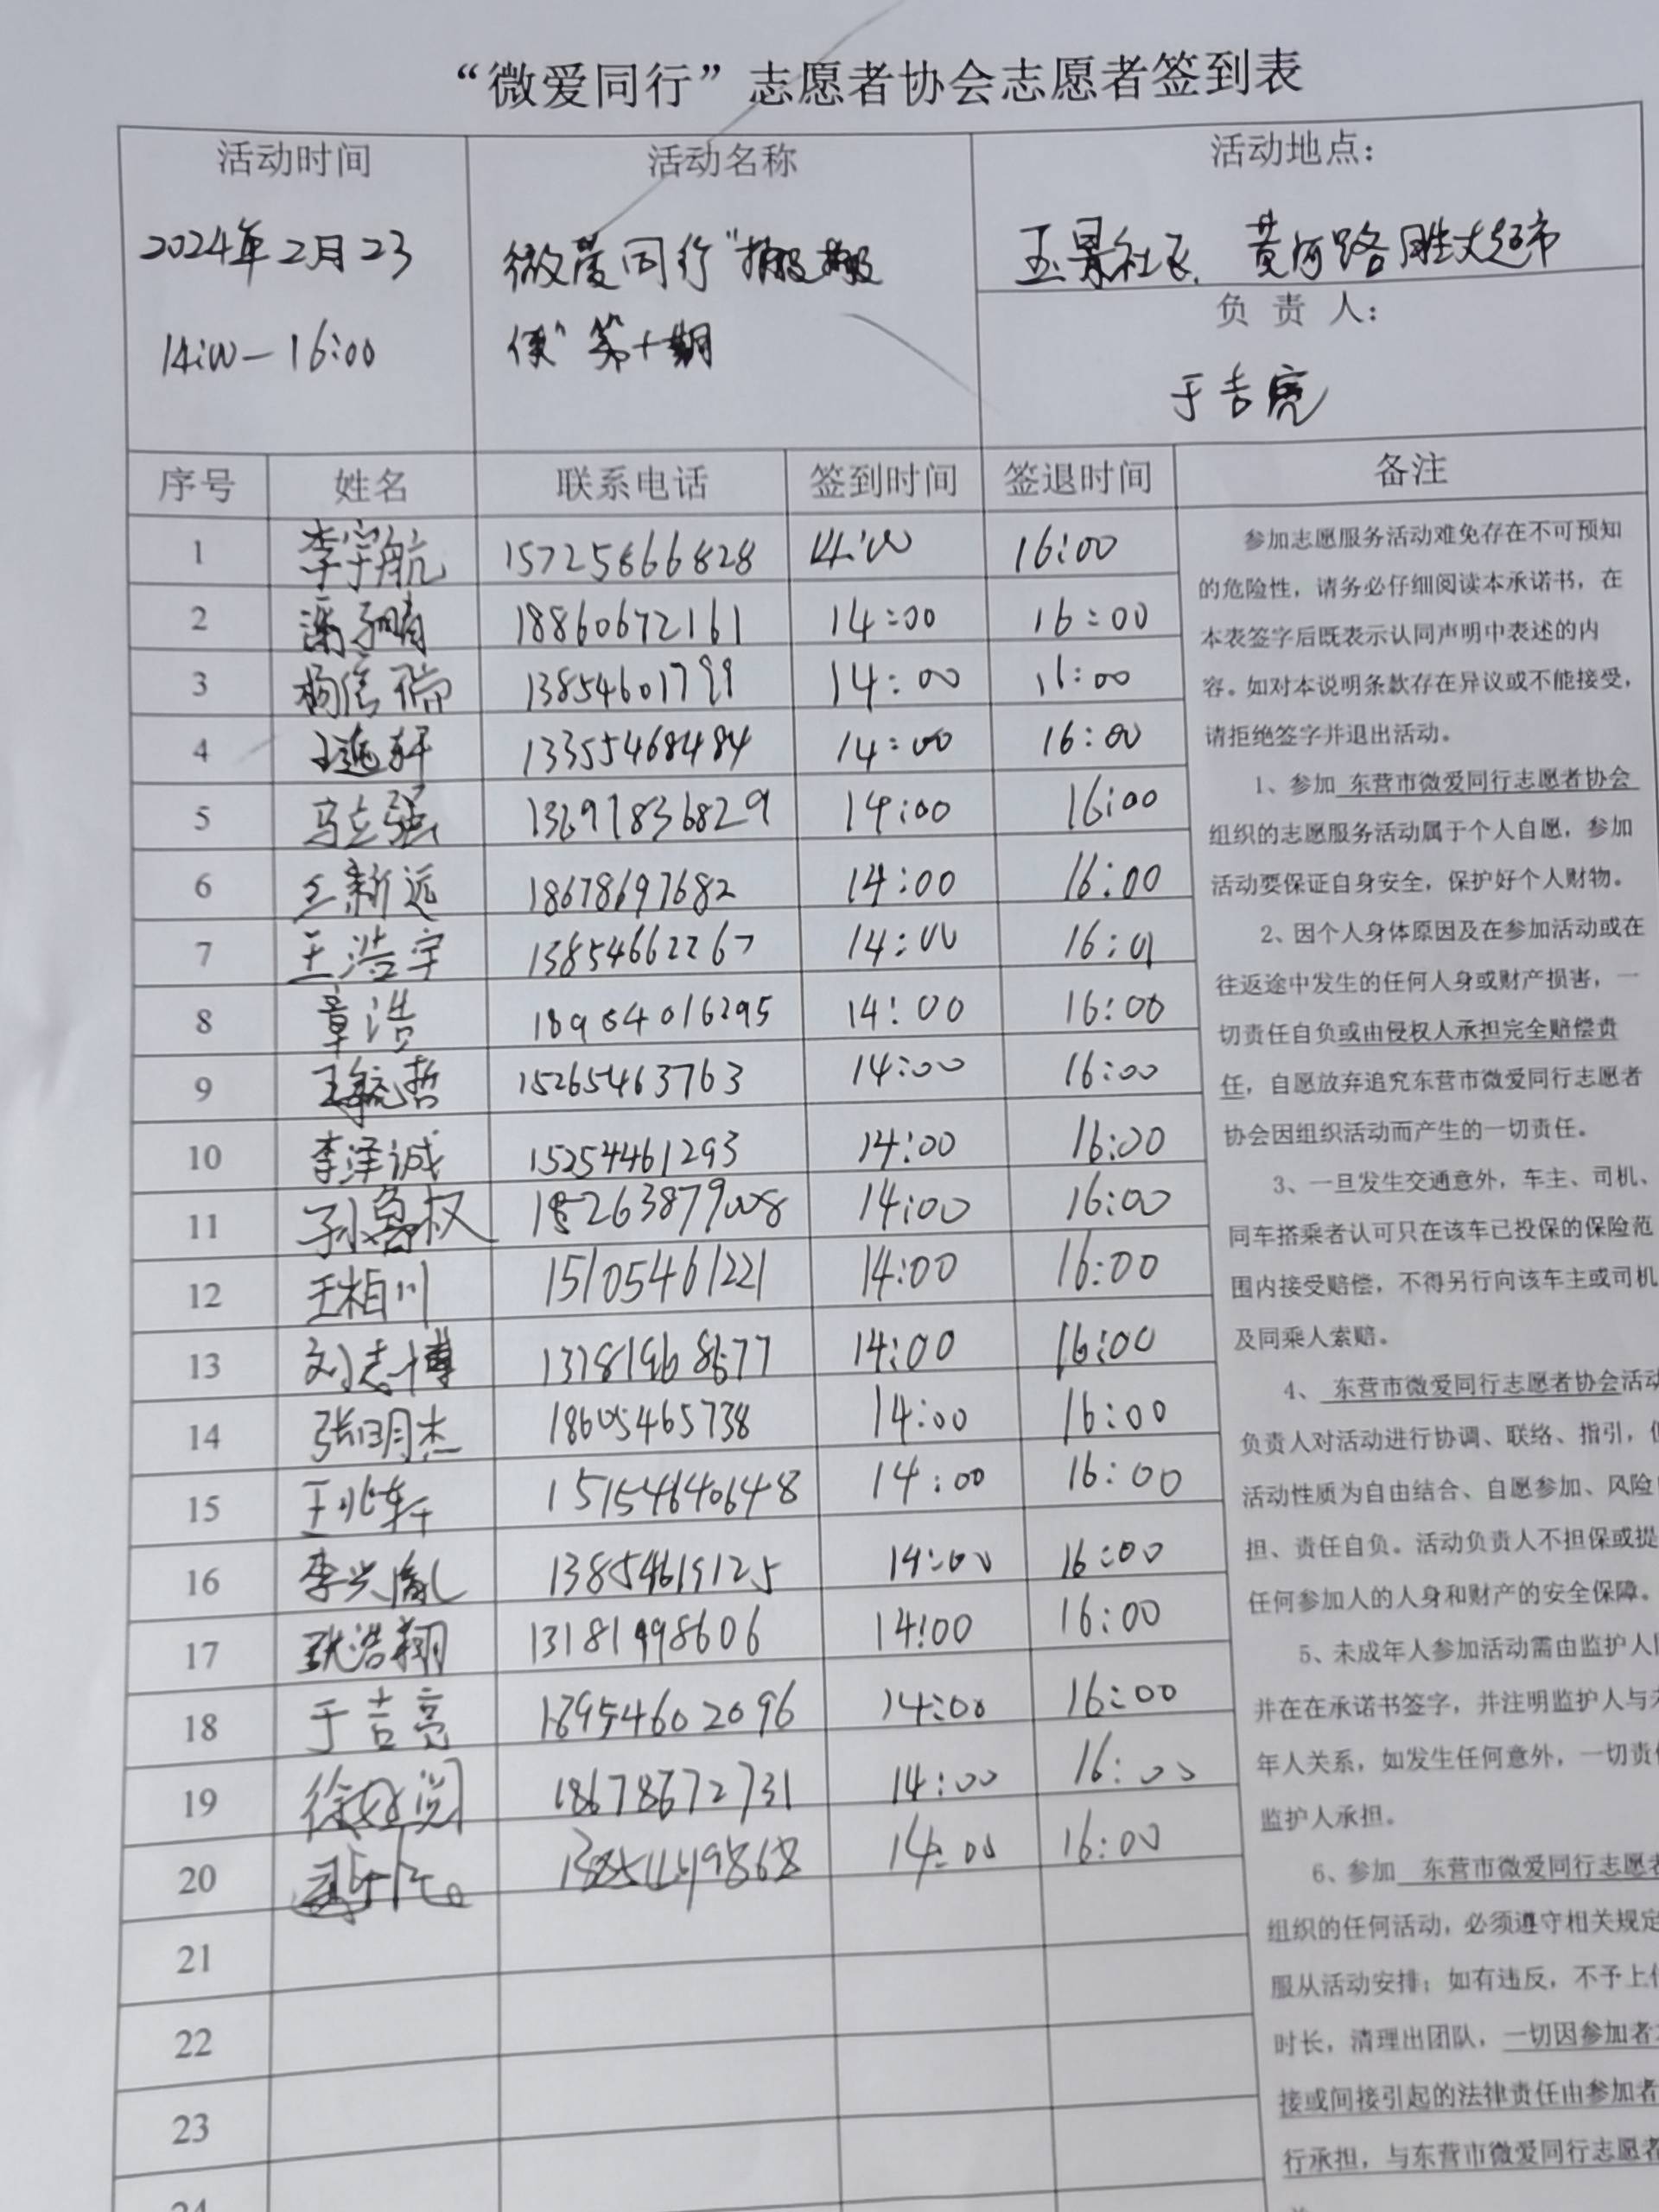 “微爱同行”志愿者协会志愿者签到表
活动时间 活动名称 活动地点：
2024年2月23 微爱同行“搬搬 玉景社区、黄河路胜大超市
14:00－16:00 侠”第十期
负 责 人：
于吉亮
序号 姓名 联系电话 签到时间 签退时间 备注
1 李宇航 15725866828 14:00 16:00
2 18860672161 14:00 16:00
3 杨信瑞 13854601799 14:00 16:00
4 13355468484 14:00 16:00
5 马立强 14:00 16:00
6 王新远 18678697682 14:00 16:00
7 王浩宇 13854662267 14:00 16:00
8 章浩 14:00 16:00
9 王毓哲 15265463763 14:00 16:00
10 李泽诚 15254461293 14:00 16:00
11 14:00 16:00
12 王柏川 15105461221 14:00 16:00
13 刘志博 14:00 16:00
14 张明杰 18605465738 14:00 16:00
15 王兆轩 14:00 16:00
16 李兴胤 13854619125 14:00 16:00
17 耿浩翔 13181998606 14:00 16:00
18 于吉亮 14:00 16:00
19 18678672731 14:00 16:00
20 14:00 16:00
21
22
23
24
参加志愿服务活动难免存在不可预知
的危险性，请务必仔细阅读本承诺书，在
本表签字后既表示认同声明中表述的内
容。如对本说明条款存在异议或不能接受，
请拒绝签字并退出活动。
1、参加 东营市微爱同行志愿者协会
组织的志愿服务活动属于个人自愿，参加
活动要保证自身安全，保护好个人财物。
2、因个人身体原因及在参加活动或在
往返途中发生的任何人身或财产损害，一
切责任自负或由侵权人承担完全赔偿责
任，自愿放弃追究东营市微爱同行志愿者
协会因组织活动而产生的一切责任。
3、一旦发生交通意外，车主、司机、
同车搭乘者认可只在该车已投保的保险范
围内接受赔偿，不得另行向该车主或司机
及同乘人索赔。
4、 东营市微爱同行志愿者协会活动
负责人对活动进行协调、联络、指引，但
活动性质为自由结合、自愿参加、风险
担、责任自负。活动负责人不担保或提
任何参加人的人身和财产的安全保障。
5、未成年人参加活动需由监护人
并在在承诺书签字，并注明监护人与未
年人关系，如发生任何意外，一切责任
监护人承担。
6、参加 东营市微爱同行志愿者
组织的任何活动，必须遵守相关规定
服从活动安排；如有违反，不予上
时长，清理出团队，一切因参加者
接或间接引起的法律责任由参加者
行承担，与东营市微爱同行志愿者